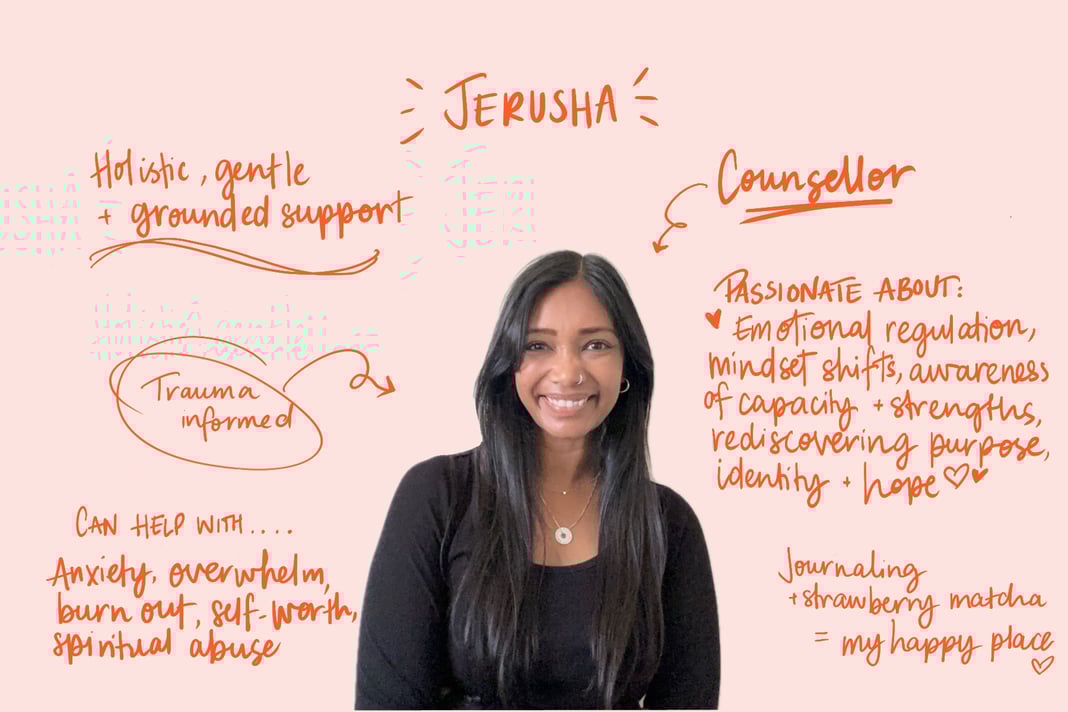 JERUSHA
Holistic, gentle
+ grounded support
Counsellor
Trauma
informed
PASSIONATE ABOUT:
Emotional regulation,
mindset shifts, awareness
of capacity + strengths,
rediscovering purpose,
identity + hope
CAN HELP WITH....
Anxiety, overwhelm,
burn out, self-worth,
spiritual abuse
Journaling
+strawberry matcha
= my happy place